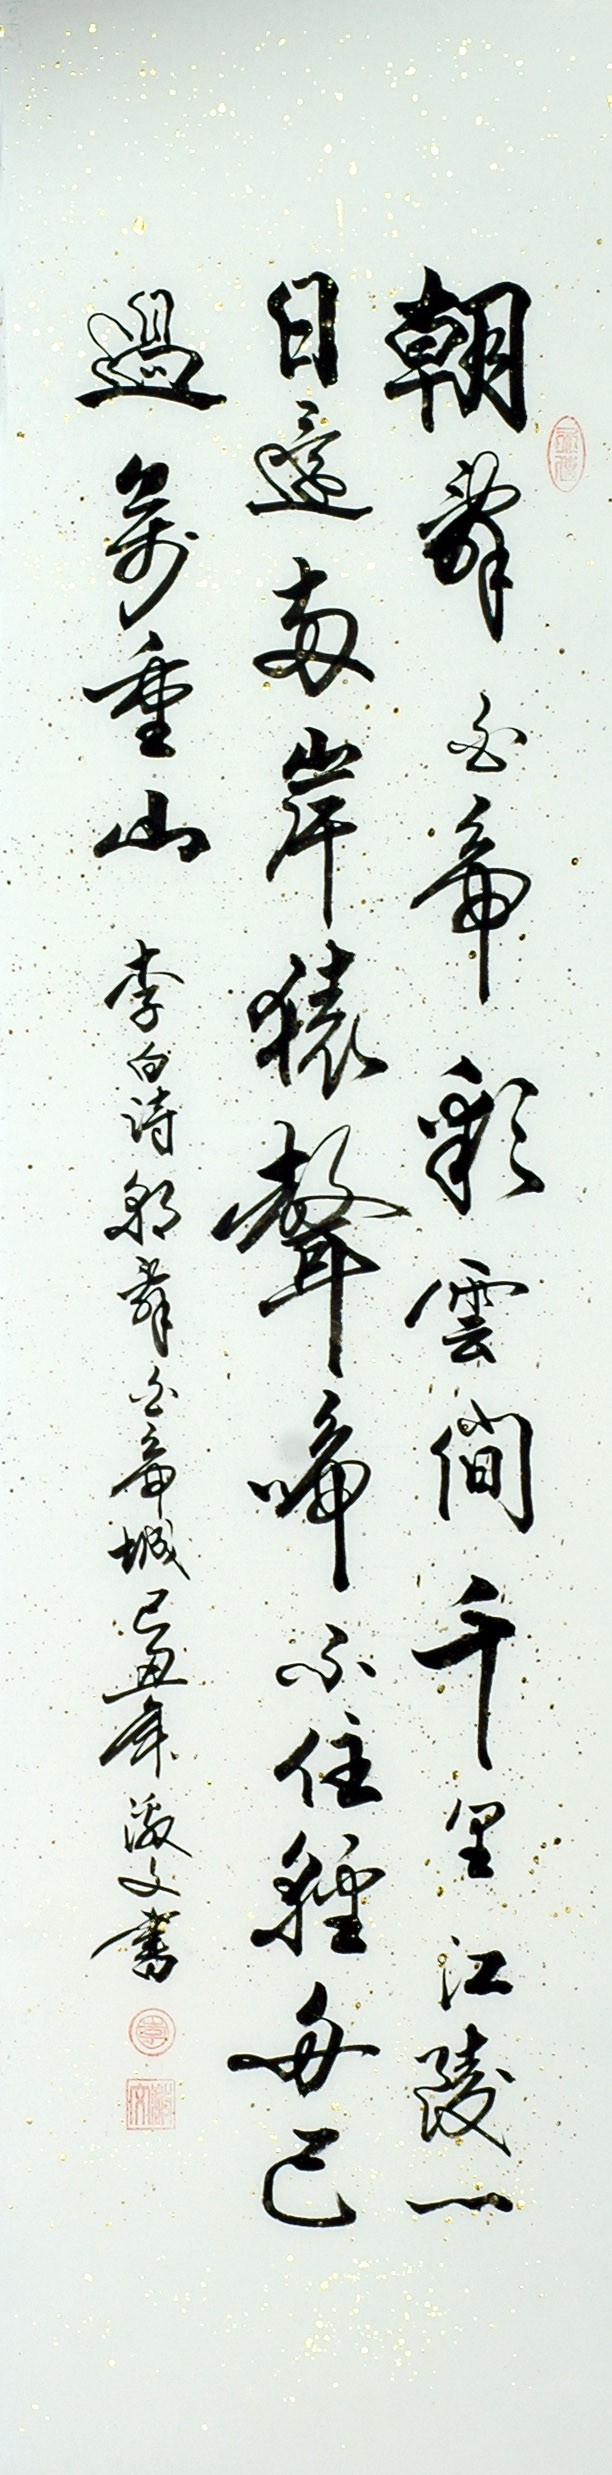 朝辭白帝彩雲間千里江陵一
日還兩岸猿聲啼不住輕舟已
過萬重山 李白詩朝辭白帝城己丑年潋文書